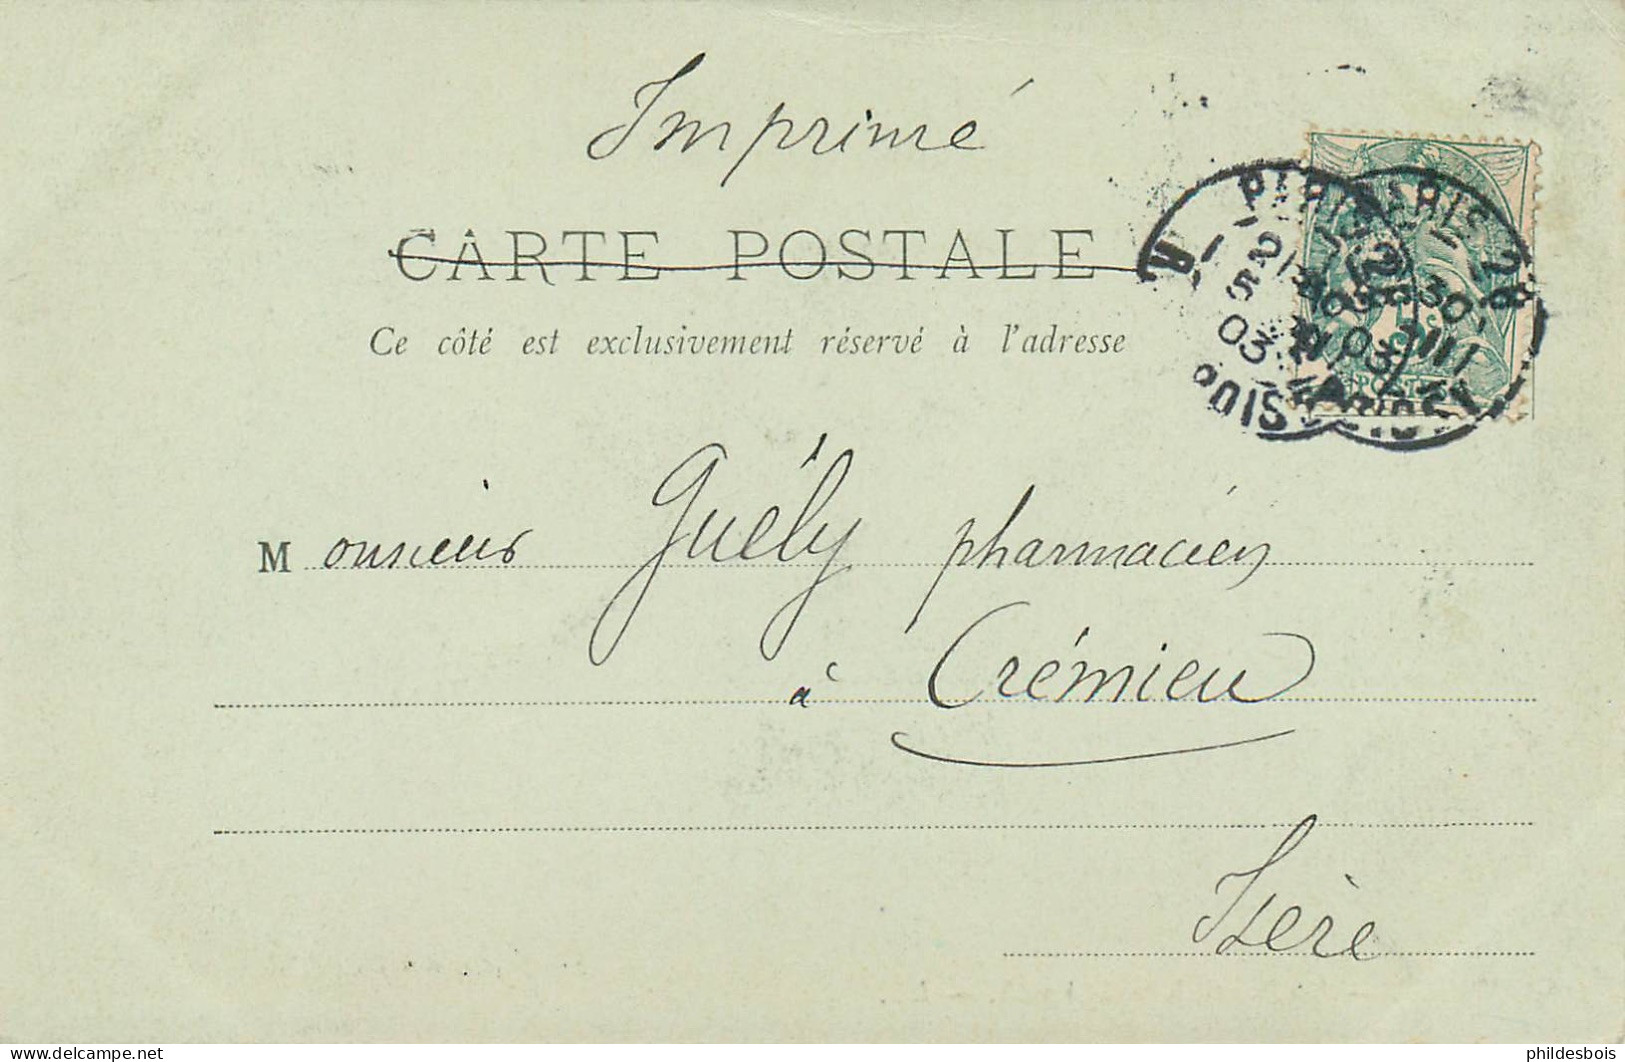 Imprimé
CARTE POSTALE
Ce côté est exclusivement réservé à l'adresse
PARIS 28
PARIS 28
21 30
5
03 03
POSTES
Monsieur Guély pharmacien
à Crémieu
Isère
www.delcampe.net
phildesbois